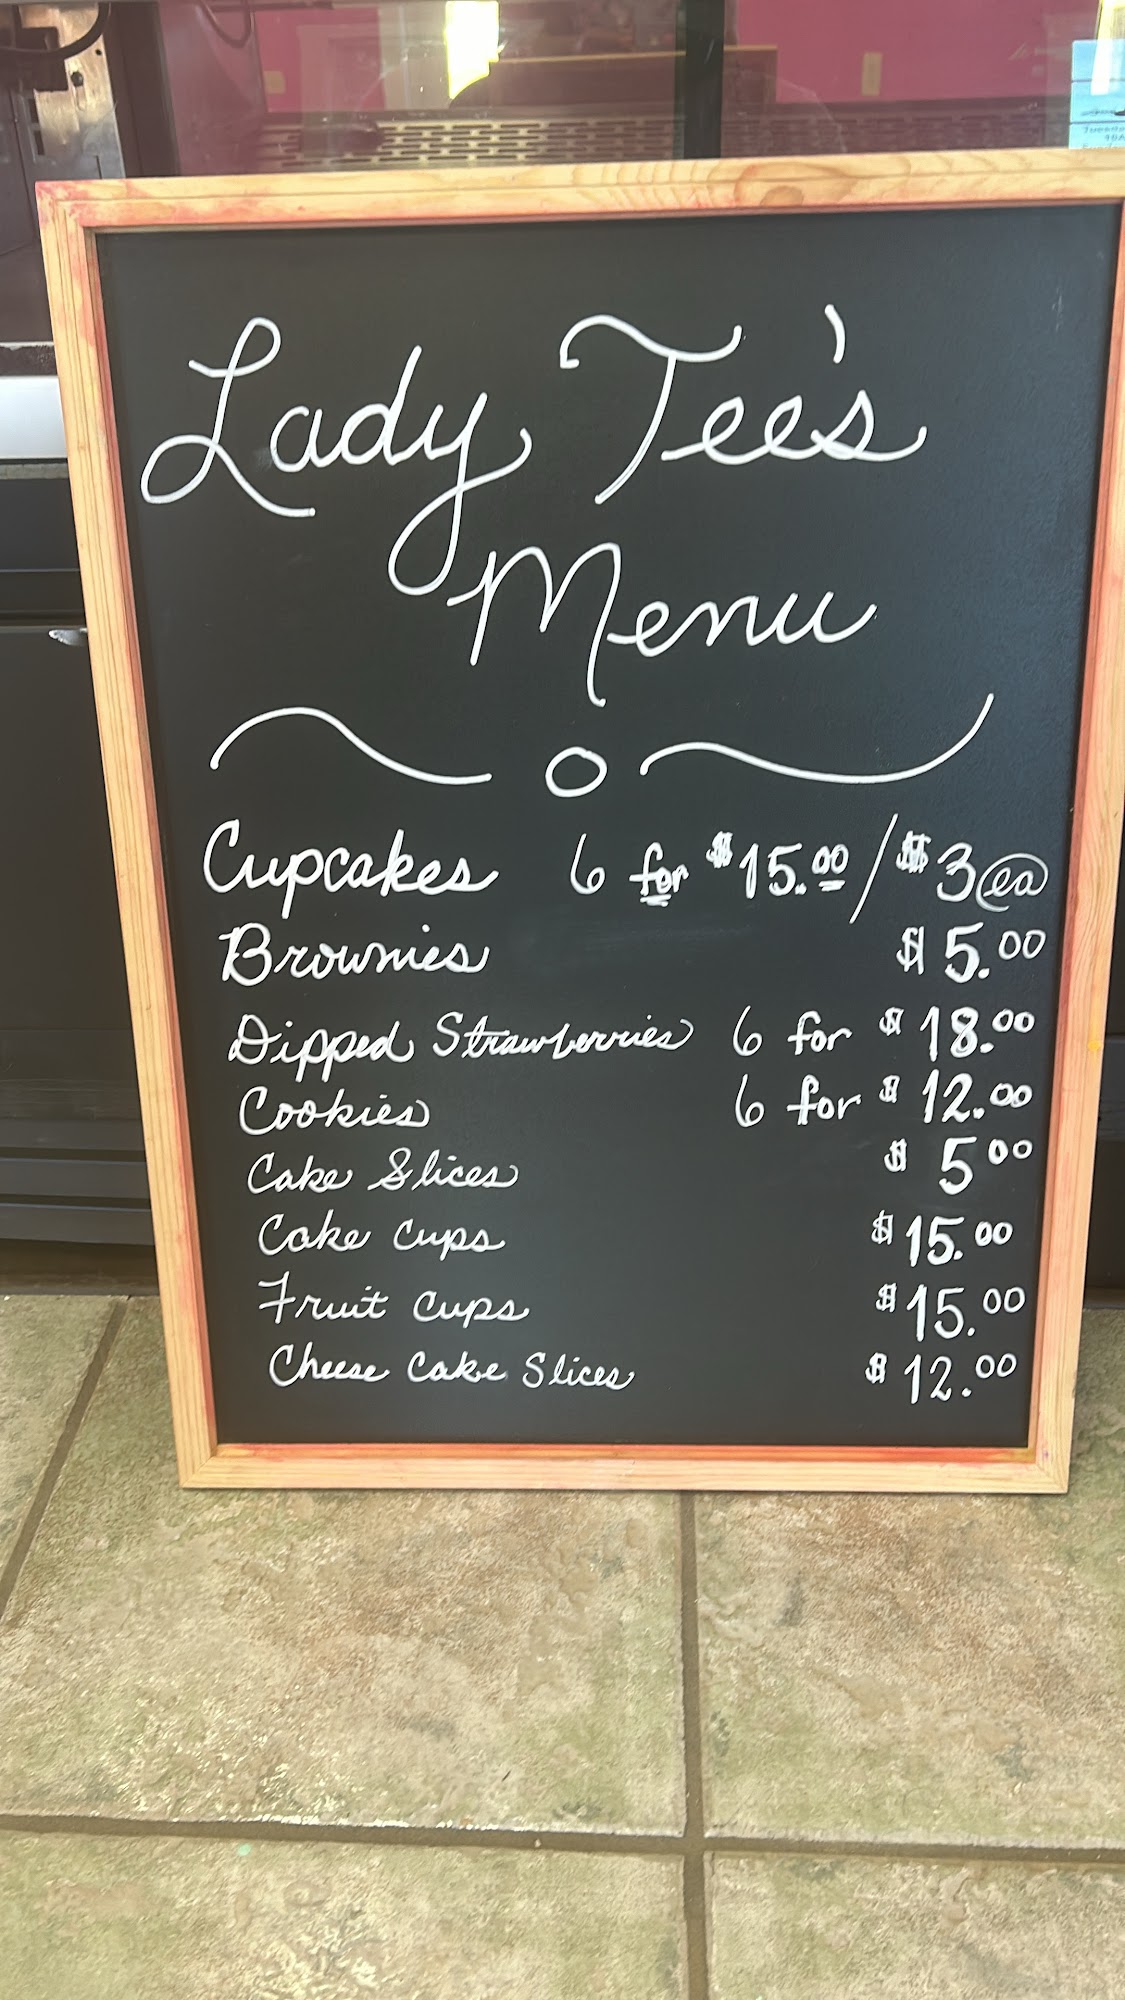 Lady Tee's
Menu
Cupcakes 6 for $15.00 / $3 ea
Brownies $5.00
Dipped Strawberries 6 for $18.00
Cookies 6 for $12.00
Cake Slices $5 00
Cake cups $15.00
Fruit cups $15.00
Cheese Cake Slices $12.00